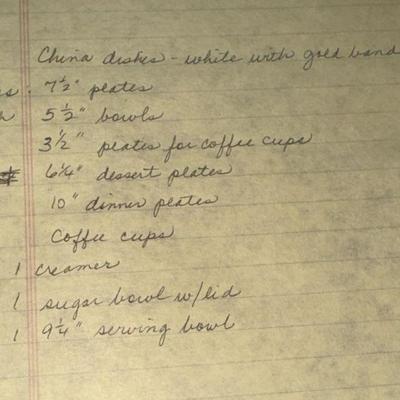 China dishes - white with gold band
7 1/2" plates
5 1/2" bowls
3 1/2" plates for coffee cups
6 1/4" dessert plates
10" dinner plates
Coffee cups
1 creamer
1 sugar bowl w/lid
1 9 1/4" serving bowl